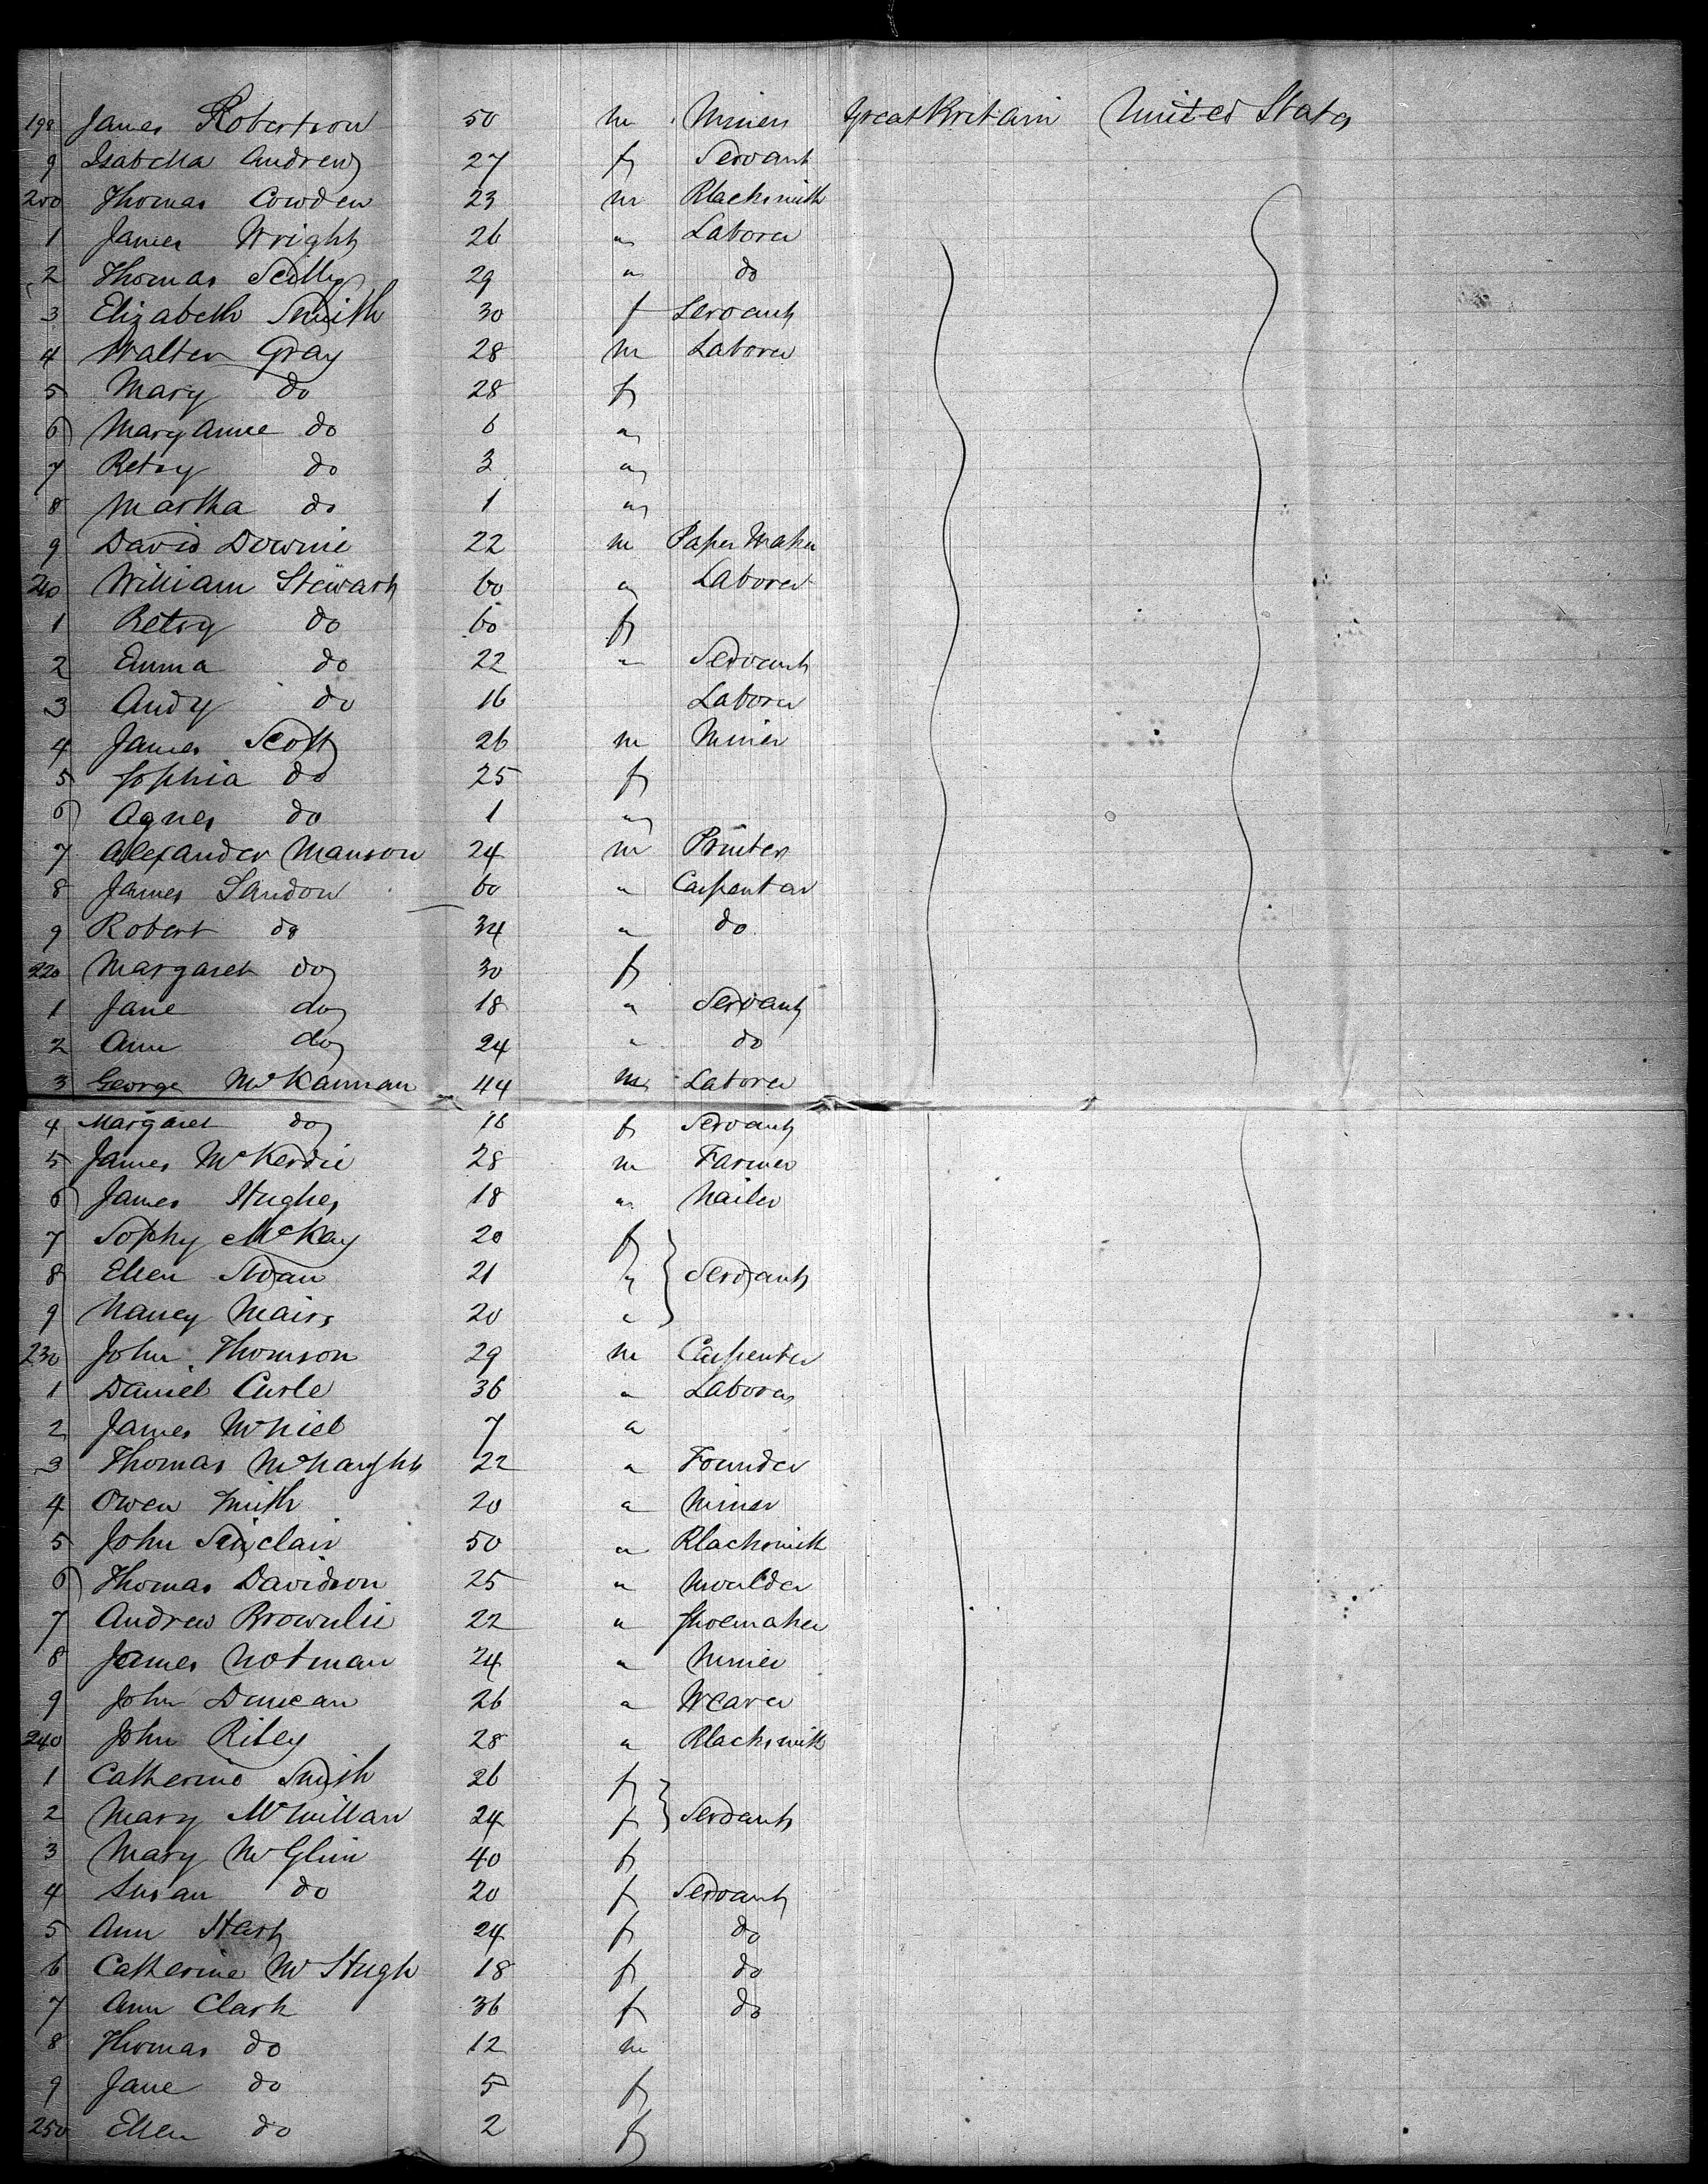 198 James Robertson 50 m Miner Great Britain United States
9 Isabella Andrew 27 f Servant
200 Thomas Cowden 23 m Blacksmith
1 James Wright 26 " Laborer
2 Thomas Scilly 29 " do
3 Elizabeth Smith 30 f Servant
4 Walter Gray 28 m Laborer
5 Mary do 28 f
6 Mary Anne do 6 "
7 Betsy do 3 "
8 Martha do 1 "
9 David Downie 22 m Paper Maker
210 William Stewart 60 " Laborer
1 Betsy do 60 f
2 Emma do 22 " Servant
3 Andy do 16 Laborer
4 James Scott 26 m Miner
5 Sophia do 25 f
6 Agnes do 1 "
7 Alexander Manson 24 m Printer
8 James Landon 60 " Carpenter
9 Robert do 34 " do
220 Margaret do 30 f
1 Jane do 18 " Servant
2 Ann do 24 " do
3 George McKannan 44 m Laborer
4 Margaret do 16 f Servant
5 James McKerdie 28 m Farmer
6 James Hughes 18 " Nailer
7 Sophy McKay 20 f
8 Ellen Sloan 21 " Servants
9 Nancy Mairs 20 "
230 John Thomson 29 m Carpenter
1 Daniel Curle 36 " Laborer
2 James McNiel 7 "
3 Thomas McNaught 22 " Founder
4 Owen Smith 20 " Miner
5 John Sinclair 50 " Blacksmith
6 Thomas Davidson 25 " Moulder
7 Andrew Brownlie 22 " Shoemaker
8 James Notman 24 " Miner
9 John Duncan 26 " Weaver
240 John Riley 28 " Blacksmith
1 Catherine Smith 26 f
2 Mary McMillan 24 f Servants
3 Mary McGlin 40 f
4 Susan do 20 f Servant
5 Ann Hart 24 f do
6 Catherine McHugh 18 f do
7 Ann Clark 36 f do
8 Thomas do 12 m
9 Jane do 5 f
250 Ellen do 2 f